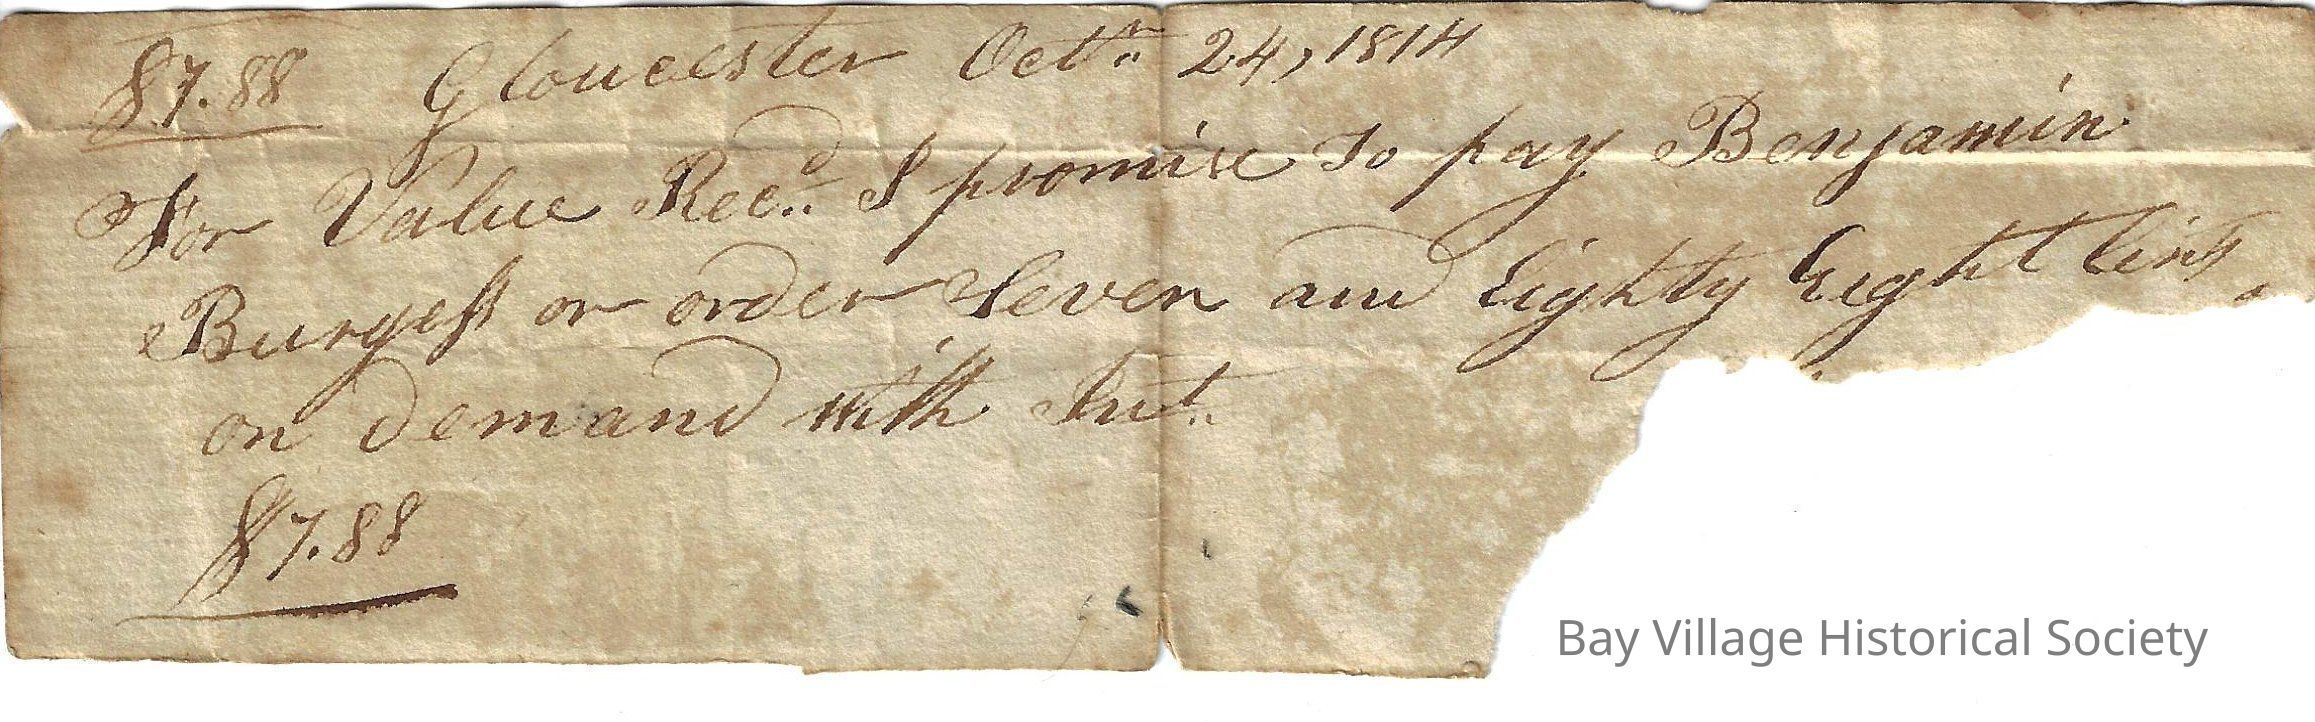 $7.88 Gloucester Octr. 24, 1814
For Value Recd. I promise to pay Benjamin
Burgess or order Seven and Eighty Eight Cents
on demand with Int.
$7.88
Bay Village Historical Society